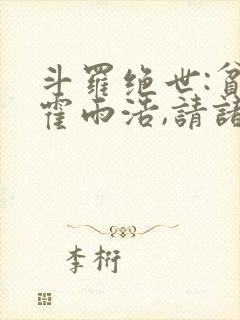 斗羅绝世:貧
霍雨浩,請諸
李桁